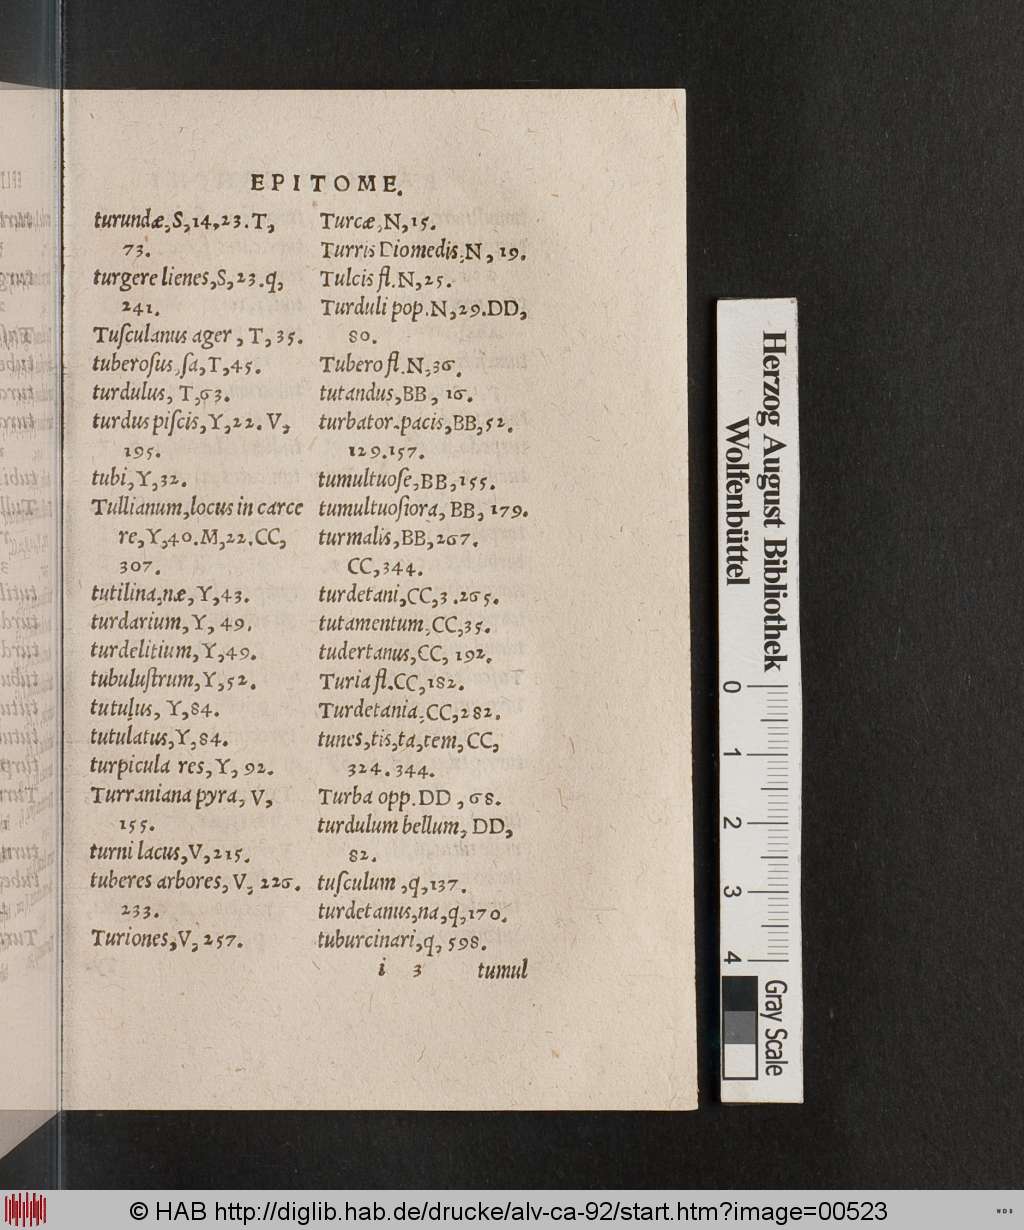 EPITOME.
turundæ, S, 14, 23. T,
73.
turgere lienes, S, 23. q,
241.
Tuſculanus ager, T, 35.
tuberoſus, ſa, T, 45.
turdulus, T, 63.
turdus piſcis, Y, 22. V,
195.
tubi, Y, 32.
Tullianum, locus in carce
re, Y, 40. M, 22. CC,
307.
tutilina, næ, Y, 43.
turdarium, Y, 49.
turdelitium, Y, 49.
tubuluſtrum, Y, 52.
tutulus, Y, 84.
tutulatus, Y, 84.
turpicula res, Y, 92.
Turraniana pyra, V,
155.
turni lacus, V, 215.
tuberes arbores, V, 226.
233.
Turiones, V, 257.
Turcæ, N, 15.
Turris Diomedis, N, 19.
Tulcis fl. N, 25.
Turduli pop. N, 29. DD,
80.
Tubero fl. N, 36.
tutandus, BB, 16.
turbator pacis, BB, 52.
129. 157.
tumultuoſe, BB, 155.
tumultuoſiora, BB, 179.
turmalis, BB, 267.
CC, 344.
turdetani, CC, 3. 265.
tutamentum, CC, 35.
tudertanus, CC, 192.
Turia fl. CC, 182.
Turdetania, CC, 282.
tunes, tis, ta, tem, CC,
324. 344.
Turba opp. DD, 68.
turdulum bellum, DD,
82.
tuſculum, q, 137.
turdetanus, na, q, 170.
tuburcinari, q, 598.
i 3 tumul
Herzog August Bibliothek
Wolfenbüttel
0 1 2 3 4
Gray Scale
© HAB http://diglib.hab.de/drucke/alv-ca-92/start.htm?image=00523